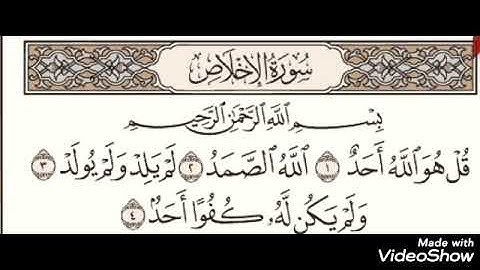 سُورَةُ الإِخْلَاصِ
بِسْمِ اللَّهِ الرَّحْمَٰنِ الرَّحِيمِ
قُلْ هُوَ اللَّهُ أَحَدٌ ١ اللَّهُ الصَّمَدُ ٢ لَمْ يَلِدْ وَلَمْ يُولَدْ ٣
وَلَمْ يَكُن لَّهُۥ كُفُوًا أَحَدٌۢ ٤
Made with
VideoShow